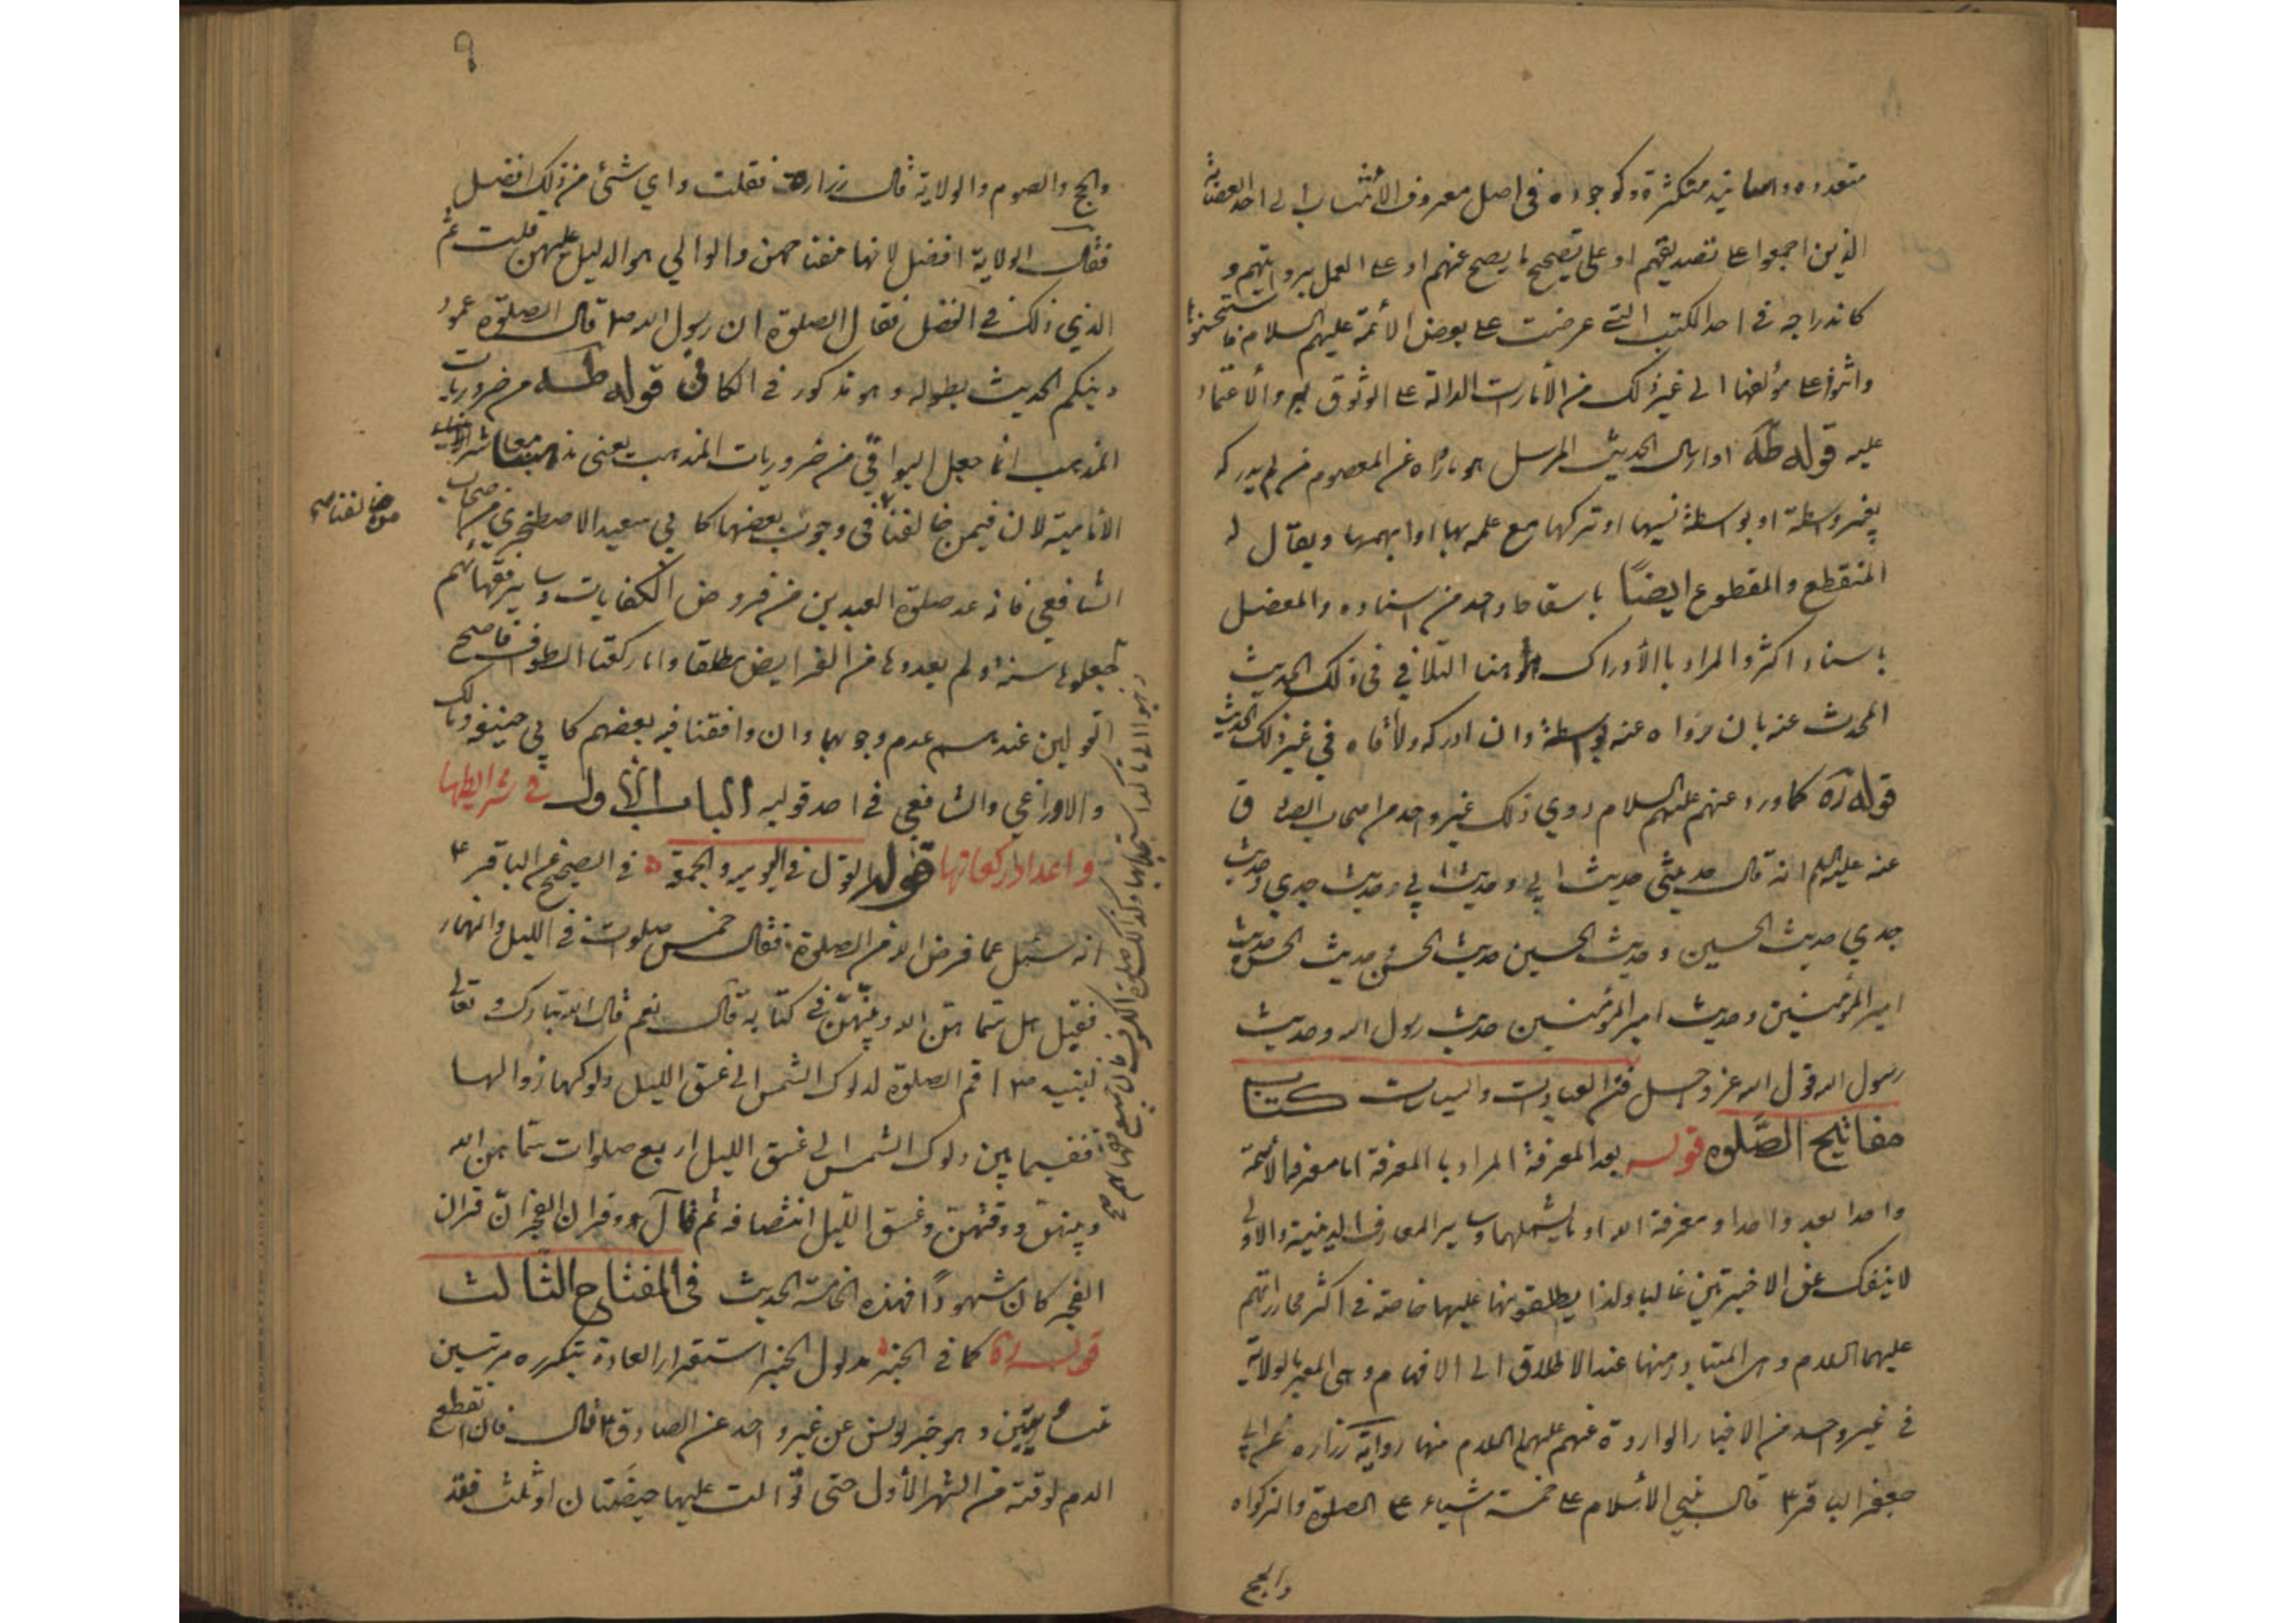 ٨
متعدده واسانيد متكثرة وكوجوده في اصل معروف الأنتساب الى احد
الذين اجمعوا على تصديقهم او على تصحيح ما يصح عنهم او على العمل بروايتهم و
كاندراجه في احد الكتب التي عرضت على بعض الأئمة عليهم السلام
واثنوا على مؤلفها الى غير ذلك من الأمارات الدالة على الوثوق به والاعتماد
عليه قوله طه او ارسال الحديث المرسل هو ما رواه عن المعصوم من لم يدركه
بغير واسطة او بواسطة نسيها او تركها مع علمه بها او ابهمها ويقال له
المنقطع والمقطوع ايضًا باسقاط واحد من اسناده والمعضل
باسناد اكثر والمراد بالأدراك هو هنا التلاقي في ذلك الحديث
المحدث عنه بان رواه عنه بواسطة وان ادركه ولاقاه في غير ذلك الحديث
قوله ره كما ورد عنهم عليهم السلام روي ذلك غير واحد من اصحاب الصادق
عنه عليه السلم انه قال حديثي حديث ابي وحديث ابي حديث جدي وحديث
جدي حديث الحسين وحديث الحسين حديث الحسن وحديث الحسن حديث
امير المؤمنين وحديث امير المؤمنين حديث رسول الله وحديث
رسول الله قول الله عز وجل فن العبادات والسياسات كتاب
مفاتيح الصلوة قوله بعد المعرفة المراد بالمعرفة اما معرفة الأئمة
واحدا بعد واحد او معرفة الله او ما يشملهما وساير المعارف الدينية والاولى
لا ينفك عن الاخيرتين غالبا ولذا يطلقونها عليها خاصة في اكثر محاوراتهم
عليهم السلام وهي المتبادر منها عند الاطلاق الى الافهام وهي المعبر بالولاية
في غير واحد من الاخبار الواردة عنهم عليهم السلام منها رواية زراره عن ابي
جعفر الباقر ع قال بني الأسلام على خمسة اشياء على الصلوة والزكواة
والحج
٩
والحج والصوم والولاية قال زرارة فقلت واي شئ من ذلك افضل
فقال الولاية افضل لانها مفتاحهن والوالي هو الدليل عليهن قلت ثم
الذي ذلك في الفضل فقال الصلوة ان رسول الله ص قال الصلوة عمود
دينكم الحديث بطوله وهو مذكور في الكافي قوله طه من ضروريات
المذهب انما جعل البواقي من ضروريات المذهب يعني مذهبنا معاشر
الامامية لان فيمن خالفنا في وجوب بعضها كابي سعيد الاصطخري من اصحاب
خالفنا
الشافعي فانه عد صلوة العيدين من فروض الكفايات وساير فقهائهم
جعلوها سنة ولم يعدوها من الفرايض مطلقا واما ركعتا الطواف فاصح
القولين عندهم عدم وجوبهما وان وافقنا فيه بعضهم كابي حنيفه ومالك
والاوزاعي والشافعي في احد قوليه الباب الأول في شرايطها
واعداد ركعاتها قوله القول في اليومية والجمعة في الصحيح عن الباقر ع
انه سئل عما فرض الله من الصلوة فقال خمس صلوات في الليل والنهار
فقيل هل سماهن الله وبينهن في كتابه قال نعم قال الله تبارك وتعالى
لنبيه ص اقم الصلوة لدلوك الشمس الى غسق الليل ودلوكها زوالها
ففيما بين دلوك الشمس الى غسق الليل اربع صلوات سماهن الله
وبينهن ووقتهن وغسق الليل انتصافه ثم قال وقران الفجر ان قران
الفجر كان مشهودًا فهذه الخامسة الحديث في المفتاح الثالث
قوله ره كما في الخبر مدلول الخبر استقرار العادة بتكرره مرتين
متساويتين وهو خبر يونس عن غير واحد عن الصادق ع قال فان انقطع
الدم لوقته من الشهر الأول حتى توالت عليها حيضتان او ثلث فقد